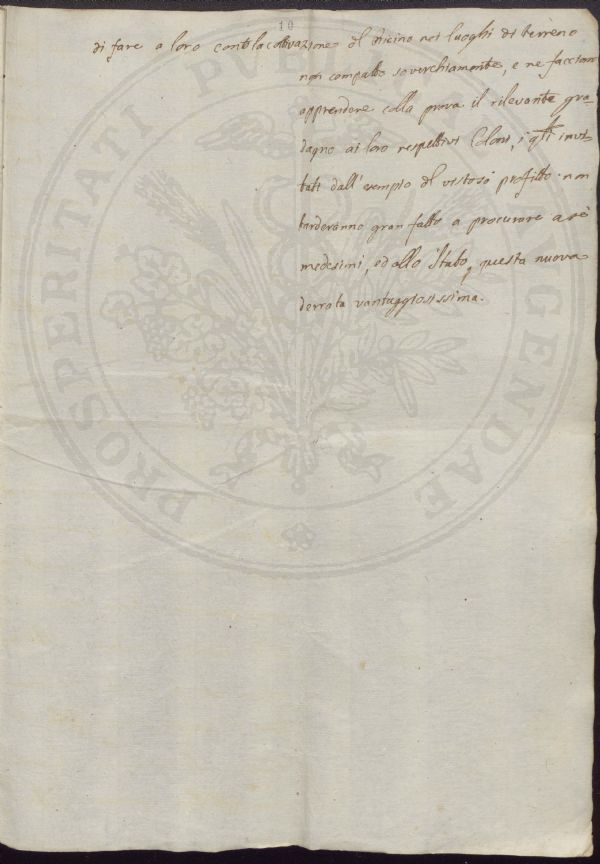 10
di fare a loro conti la coltivazione del Ricino nei luoghi di terreno
non compatto soverchiamente, e ne facciano
apprendere colla prova il rilevante gua-
dagno ai loro respettivi Coloni, i qli invi-
tati dall'esempio del vistoso profitto non
tarderanno gran fatto a procurare a se
medesimi, ed allo Stato, questa nuova
derrata vantaggiosissima.
PROSPERITATI PUBLICAE AUGENDAE